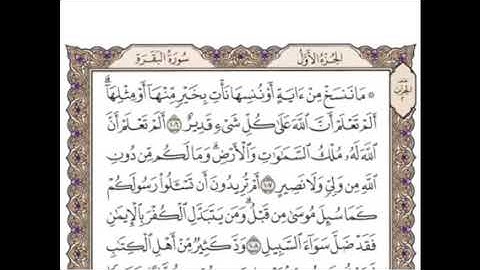 الجُزْءُ الأَوَّلُ
سُورَةُ البَقَرَةِ
۞ مَا نَنسَخْ مِنْ ءَايَةٍ أَوْ نُنسِهَا نَأْتِ بِخَيْرٍ مِّنْهَآ أَوْ مِثْلِهَآۗ
أَلَمْ تَعْلَمْ أَنَّ ٱللَّهَ عَلَىٰ كُلِّ شَىْءٍ قَدِيرٌ ١٠٦ أَلَمْ تَعْلَمْ أَنَّ
ٱللَّهَ لَهُۥ مُلْكُ ٱلسَّمَٰوَٰتِ وَٱلْأَرْضِۗ وَمَا لَكُم مِّن دُونِ
ٱللَّهِ مِن وَلِىٍّ وَلَا نَصِيرٍ ١٠٧ أَمْ تُرِيدُونَ أَن تَسْـَٔلُوا۟ رَسُولَكُمْ
كَمَا سُئِلَ مُوسَىٰ مِن قَبْلُۗ وَمَن يَتَبَدَّلِ ٱلْكُفْرَ بِٱلْإِيمَٰنِ
فَقَدْ ضَلَّ سَوَآءَ ٱلسَّبِيلِ ١٠٨ وَدَّ كَثِيرٌ مِّنْ أَهْلِ ٱلْكِتَٰبِ